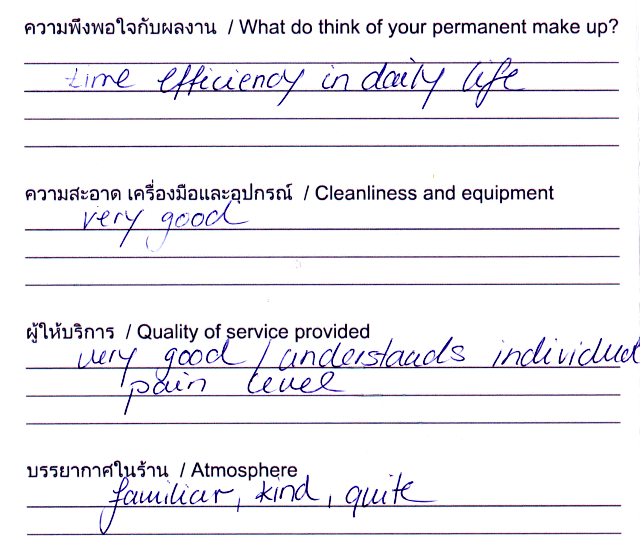 ความพึงพอใจกับผลงาน / What do think of your permanent make up?
time efficiency in daily life
ความสะอาด เครื่องมือและอุปกรณ์ / Cleanliness and equipment
very good
ผู้ให้บริการ / Quality of service provided
very good / understands individual
pain level
บรรยากาศในร้าน / Atmosphere
familiar, kind, quite